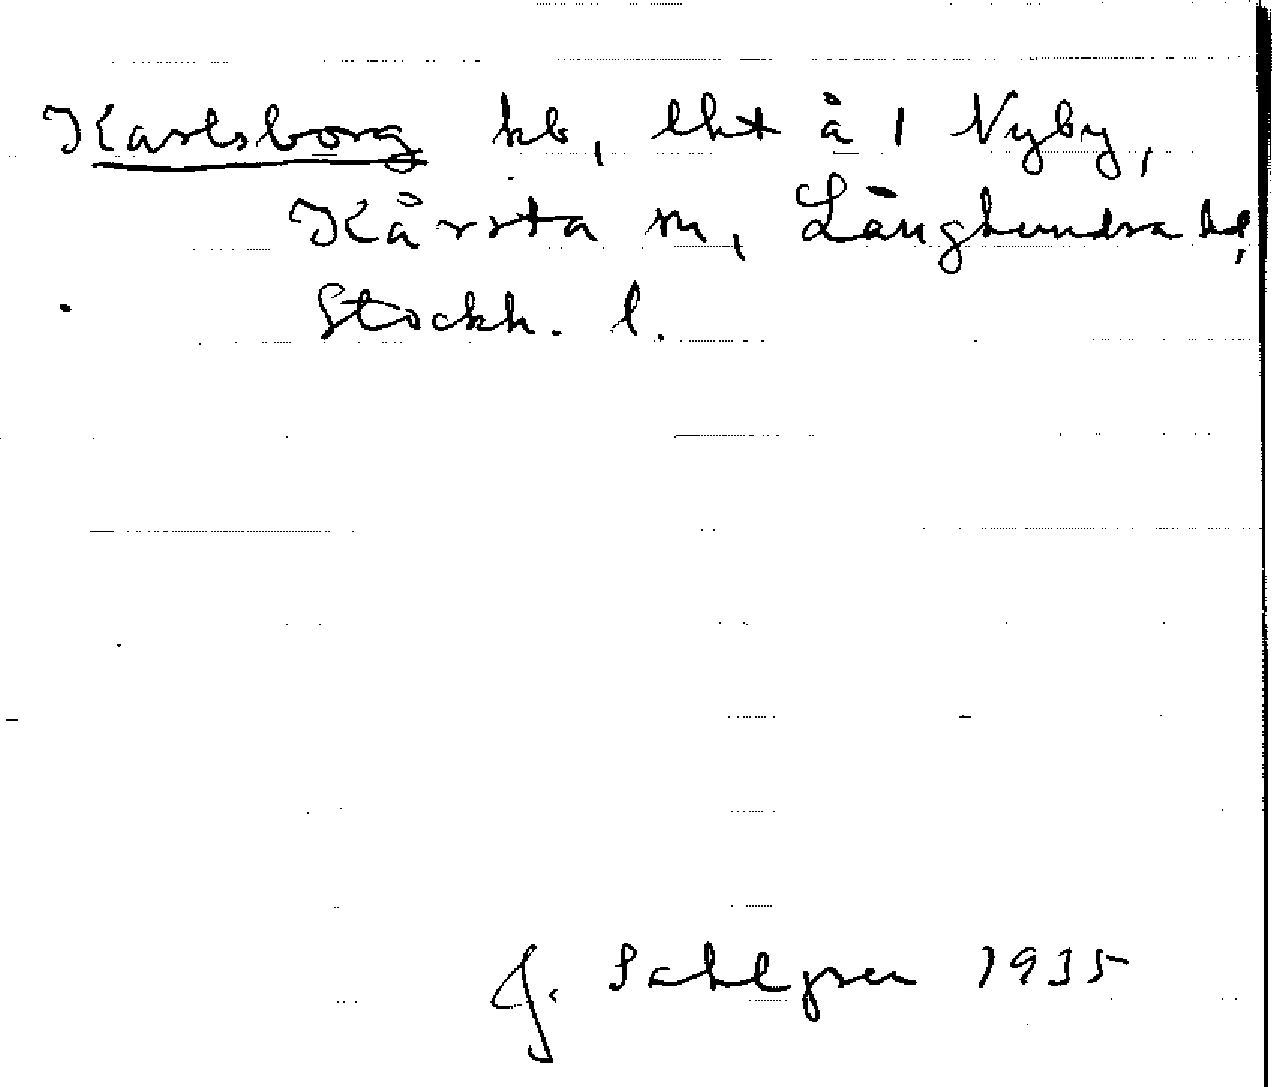 Karlsborg hb, lht å 1 Nyby,
Kårsta sn, Långhundra hd,
Stockh. l.
J. Sahlgren 1935